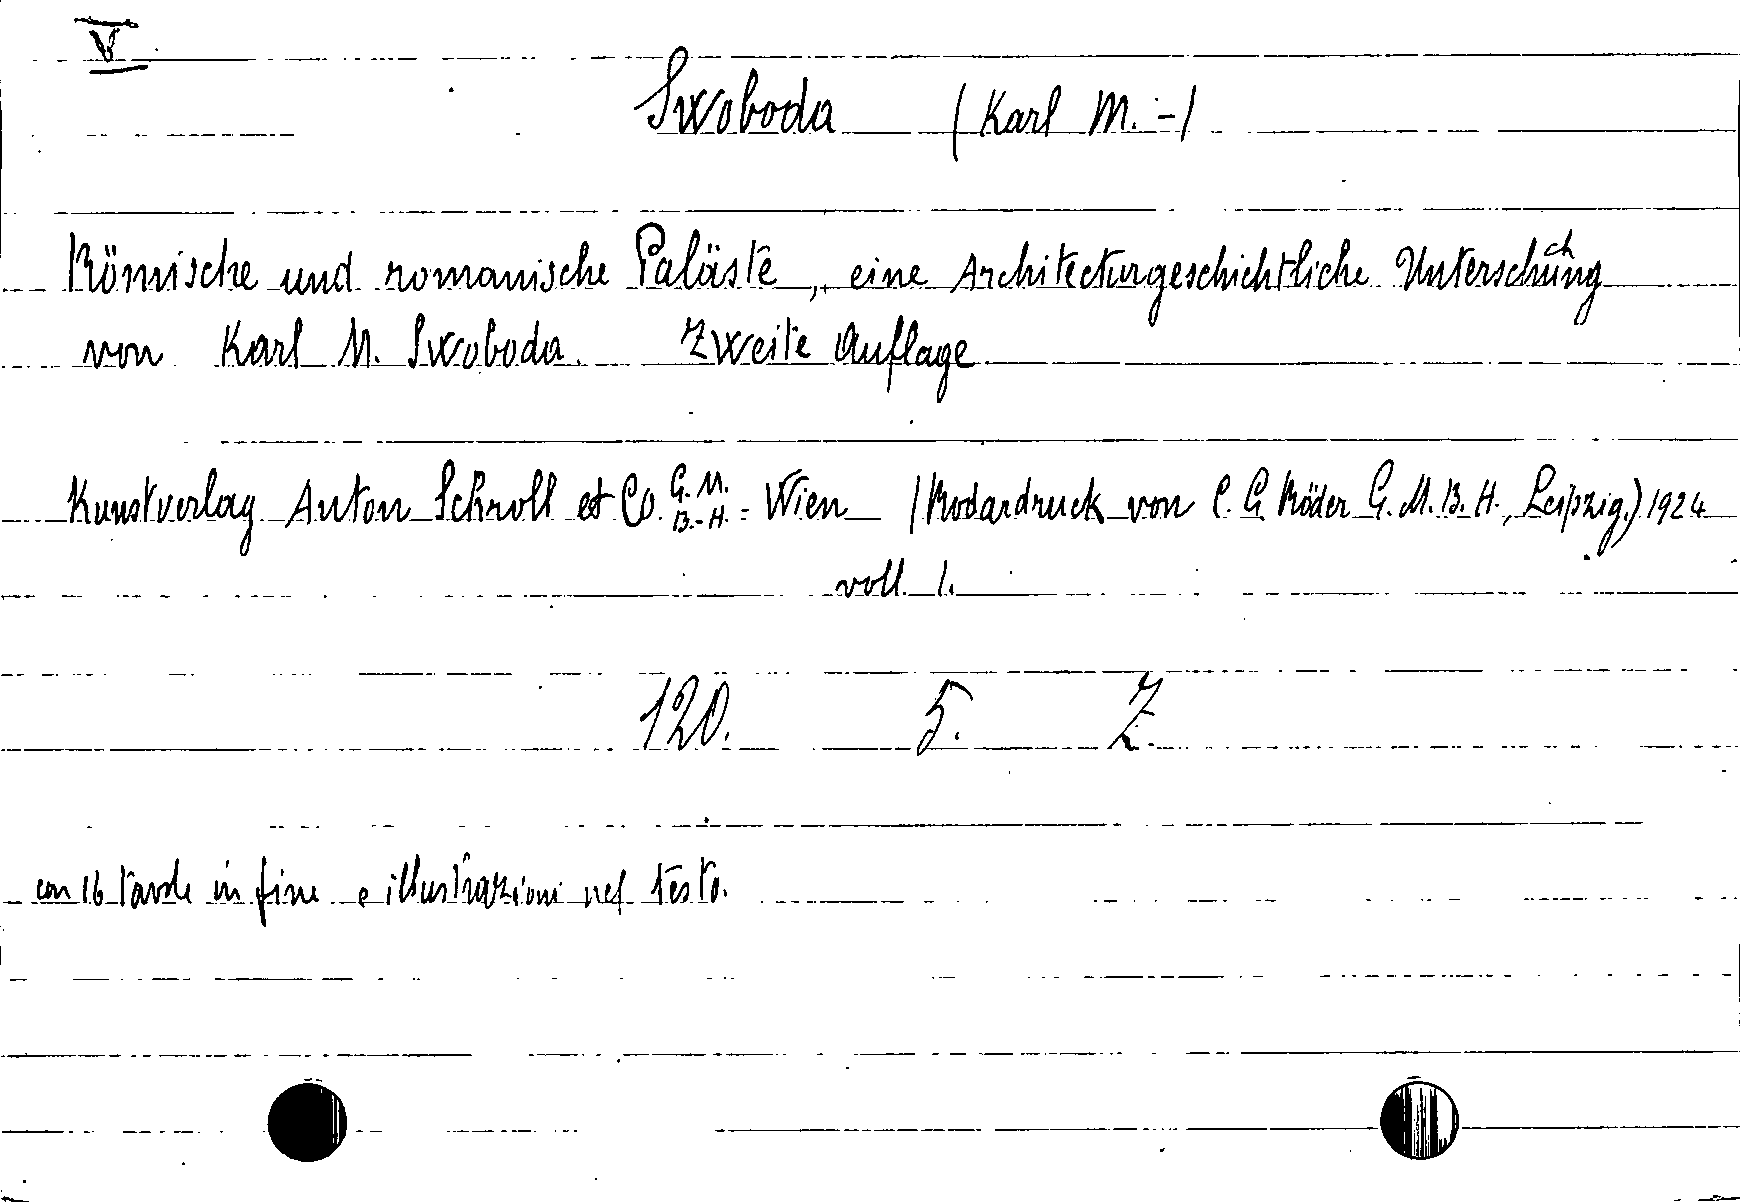 V
Swoboda (Karl M. -)
Römische und romanische Paläste, eine Architecturgeschichtliche Unterschung
ch
von Karl M. Swoboda. Zweite Auflage
Kunstverlag Anton Schroll et Co. G. M. B. H. = Wien (Rodardruck von C. G. Röder G. M. B. H., Leipzig.) 1924
voll. 1.
120. 5. Z.
con 16 tavole in fine e illustrazioni nel testo.